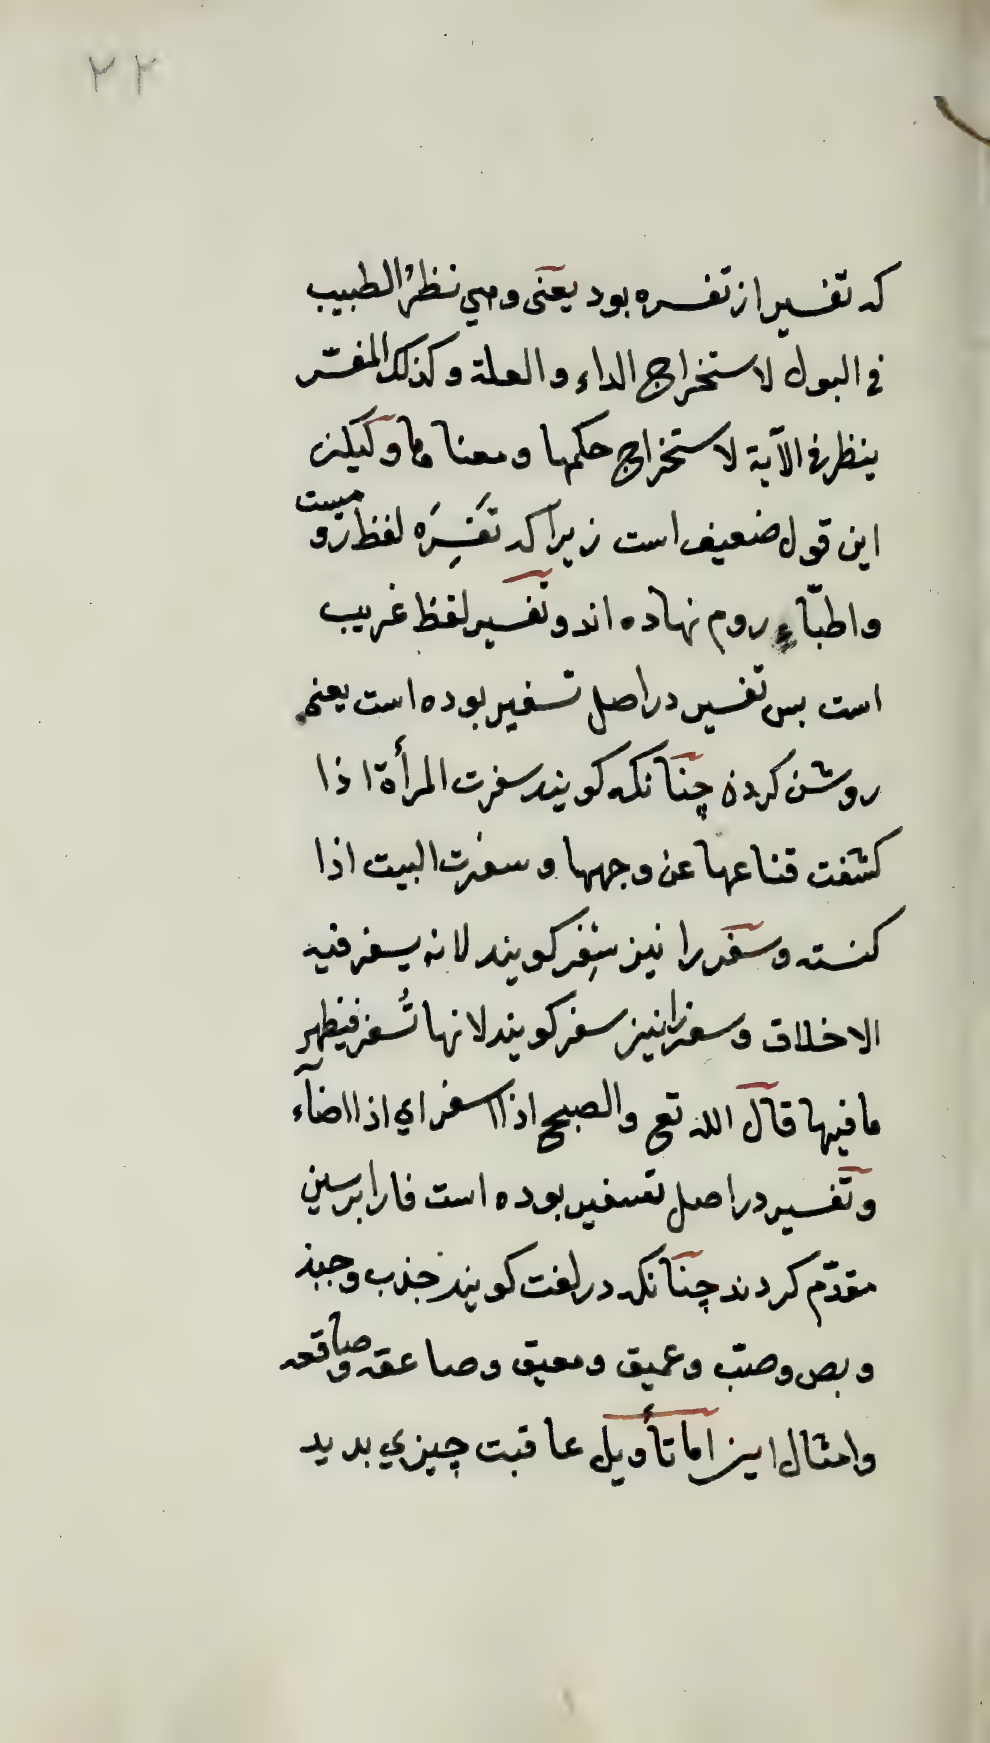 ۲۲
که تفسیر از تفسره بود یعنی وهی نظرُ الطبیب
فی البول لاستخراج الداء والعلة وکذلک المفسّر
ینظر فی الآیة لاستخراج حکمها ومعناها ولیکن
این قول ضعیف است زیرا که تَفسِرَه لفظ رومیست
واطبّاء روم نهاده اند وتفسیر لفظ غریب
است بس تفسیر در اصل تسفیر بوده است یعنی
روشن کردن چنانکه کویند سفرت المرأة اذا
کشفت قناعها عن وجهها وسفرت البیت اذا
کنسته وسفر را نیز سِفر کویند لانه یسفر فیه
الاخلاق وسفر را نیز سفر کویند لانها تُسفر فیظهر
ما فیها قال الله تع والصبح اذا اسفر ای اذا اضآء
وتفسیر در اصل تسفیر بوده است فا را بر سین
مقدّم کردند چنانکه در لغت کویند جذب وجبذ
وبص وصبّ وعمیق ومعیق وصاعقه وصاقعه
وامثال این اما تأویل عاقبت چیزی بدید